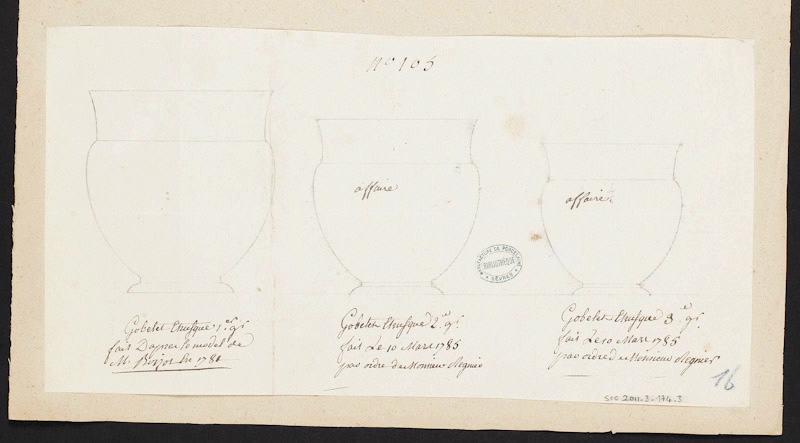 No 105
affaire
affaire
MANUFACTURE DE PORCELAINE
BIBLIOTHEQUE
* SÈVRES *
Gobelet Etrusque 1ere gr.
fait Dapres le model de
M. Boizot en 178
Gobelet Etrusque 2e gr.
fait Le 10 Mars 1785
par ordre de Monsieur Regnier
Gobelet Etrusque 3e gr.
fait Le 10 Mars 1785
par ordre de Monsieur Regnier
16
2011-3-174-3